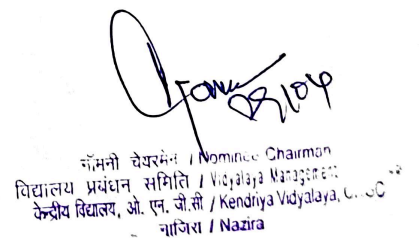 08/04
नॉमनी चेयरमेन / Nominee Chairman
विद्यालय प्रबंधन समिति / Vidyalaya Management
केन्द्रीय विद्यालय, ओ. एन. जी.सी / Kendriya Vidyalaya,
नाजिरा / Nazira